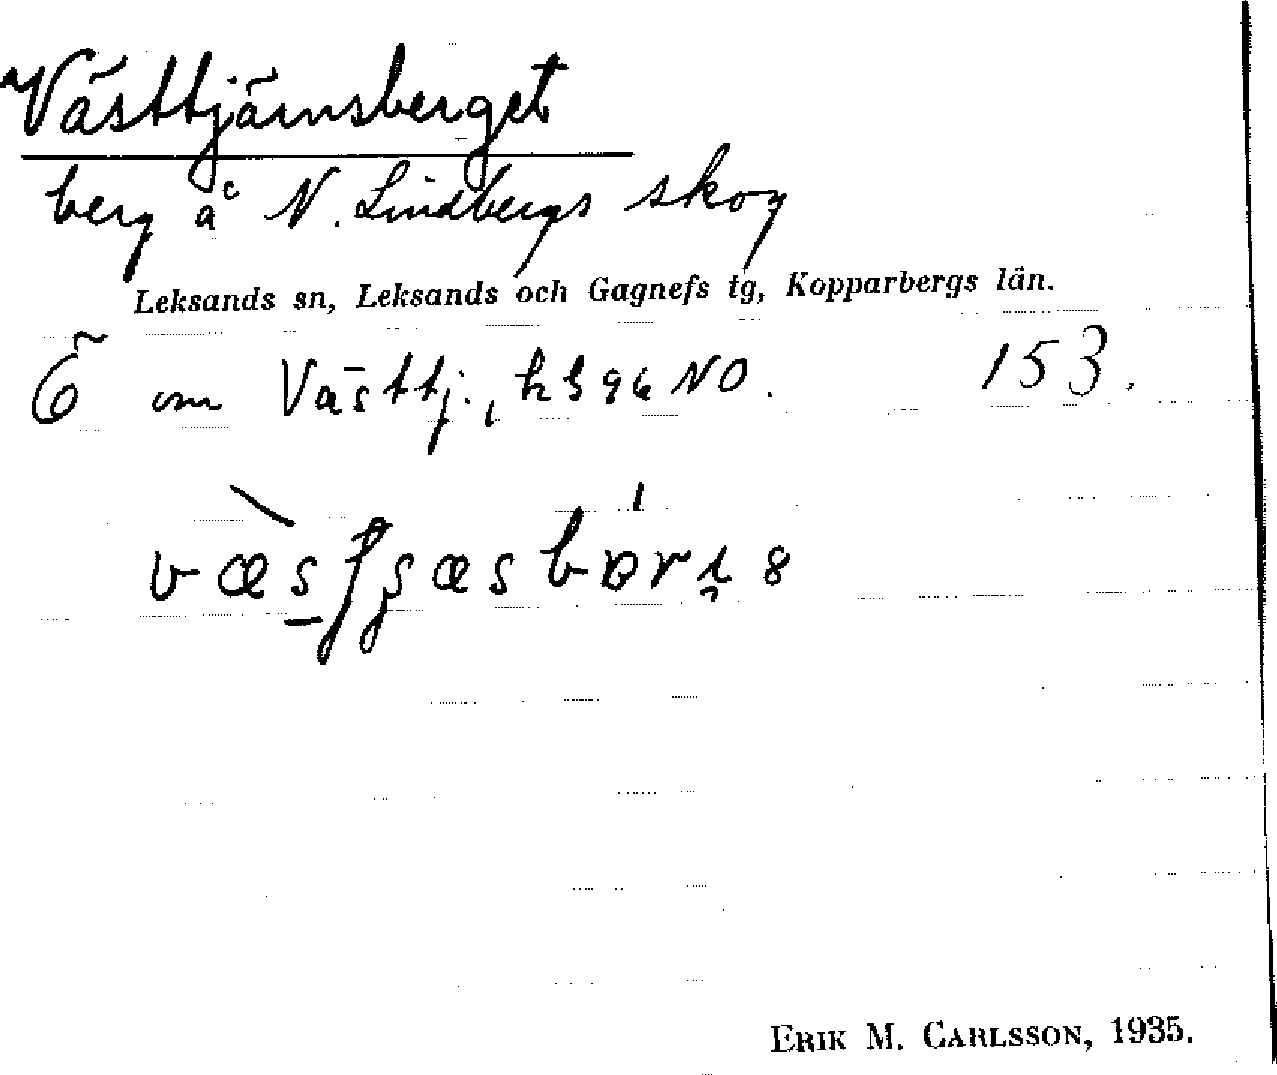 Västtjärnsberget
berg å N. Lindbergs skog
Leksands sn, Leksands och Gagnefs tg, Kopparbergs län.
Ö om Västtj., 96 NO. 153.
ERIK M. CARLSSON, 1935.